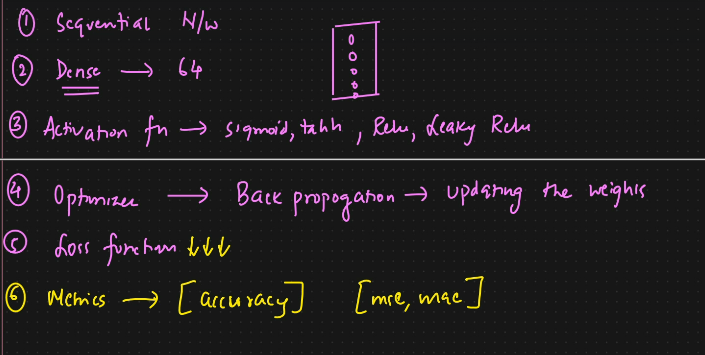 ① Sequential N/w
② Dense → 64
③ Activation fn → sigmoid, tahh, Relu, Leaky Relu
④ Optimizer → Back propogation → updating the weights
⑤ Loss function ↓↓↓
⑥ Metrics → [accuracy] [mse, mae]